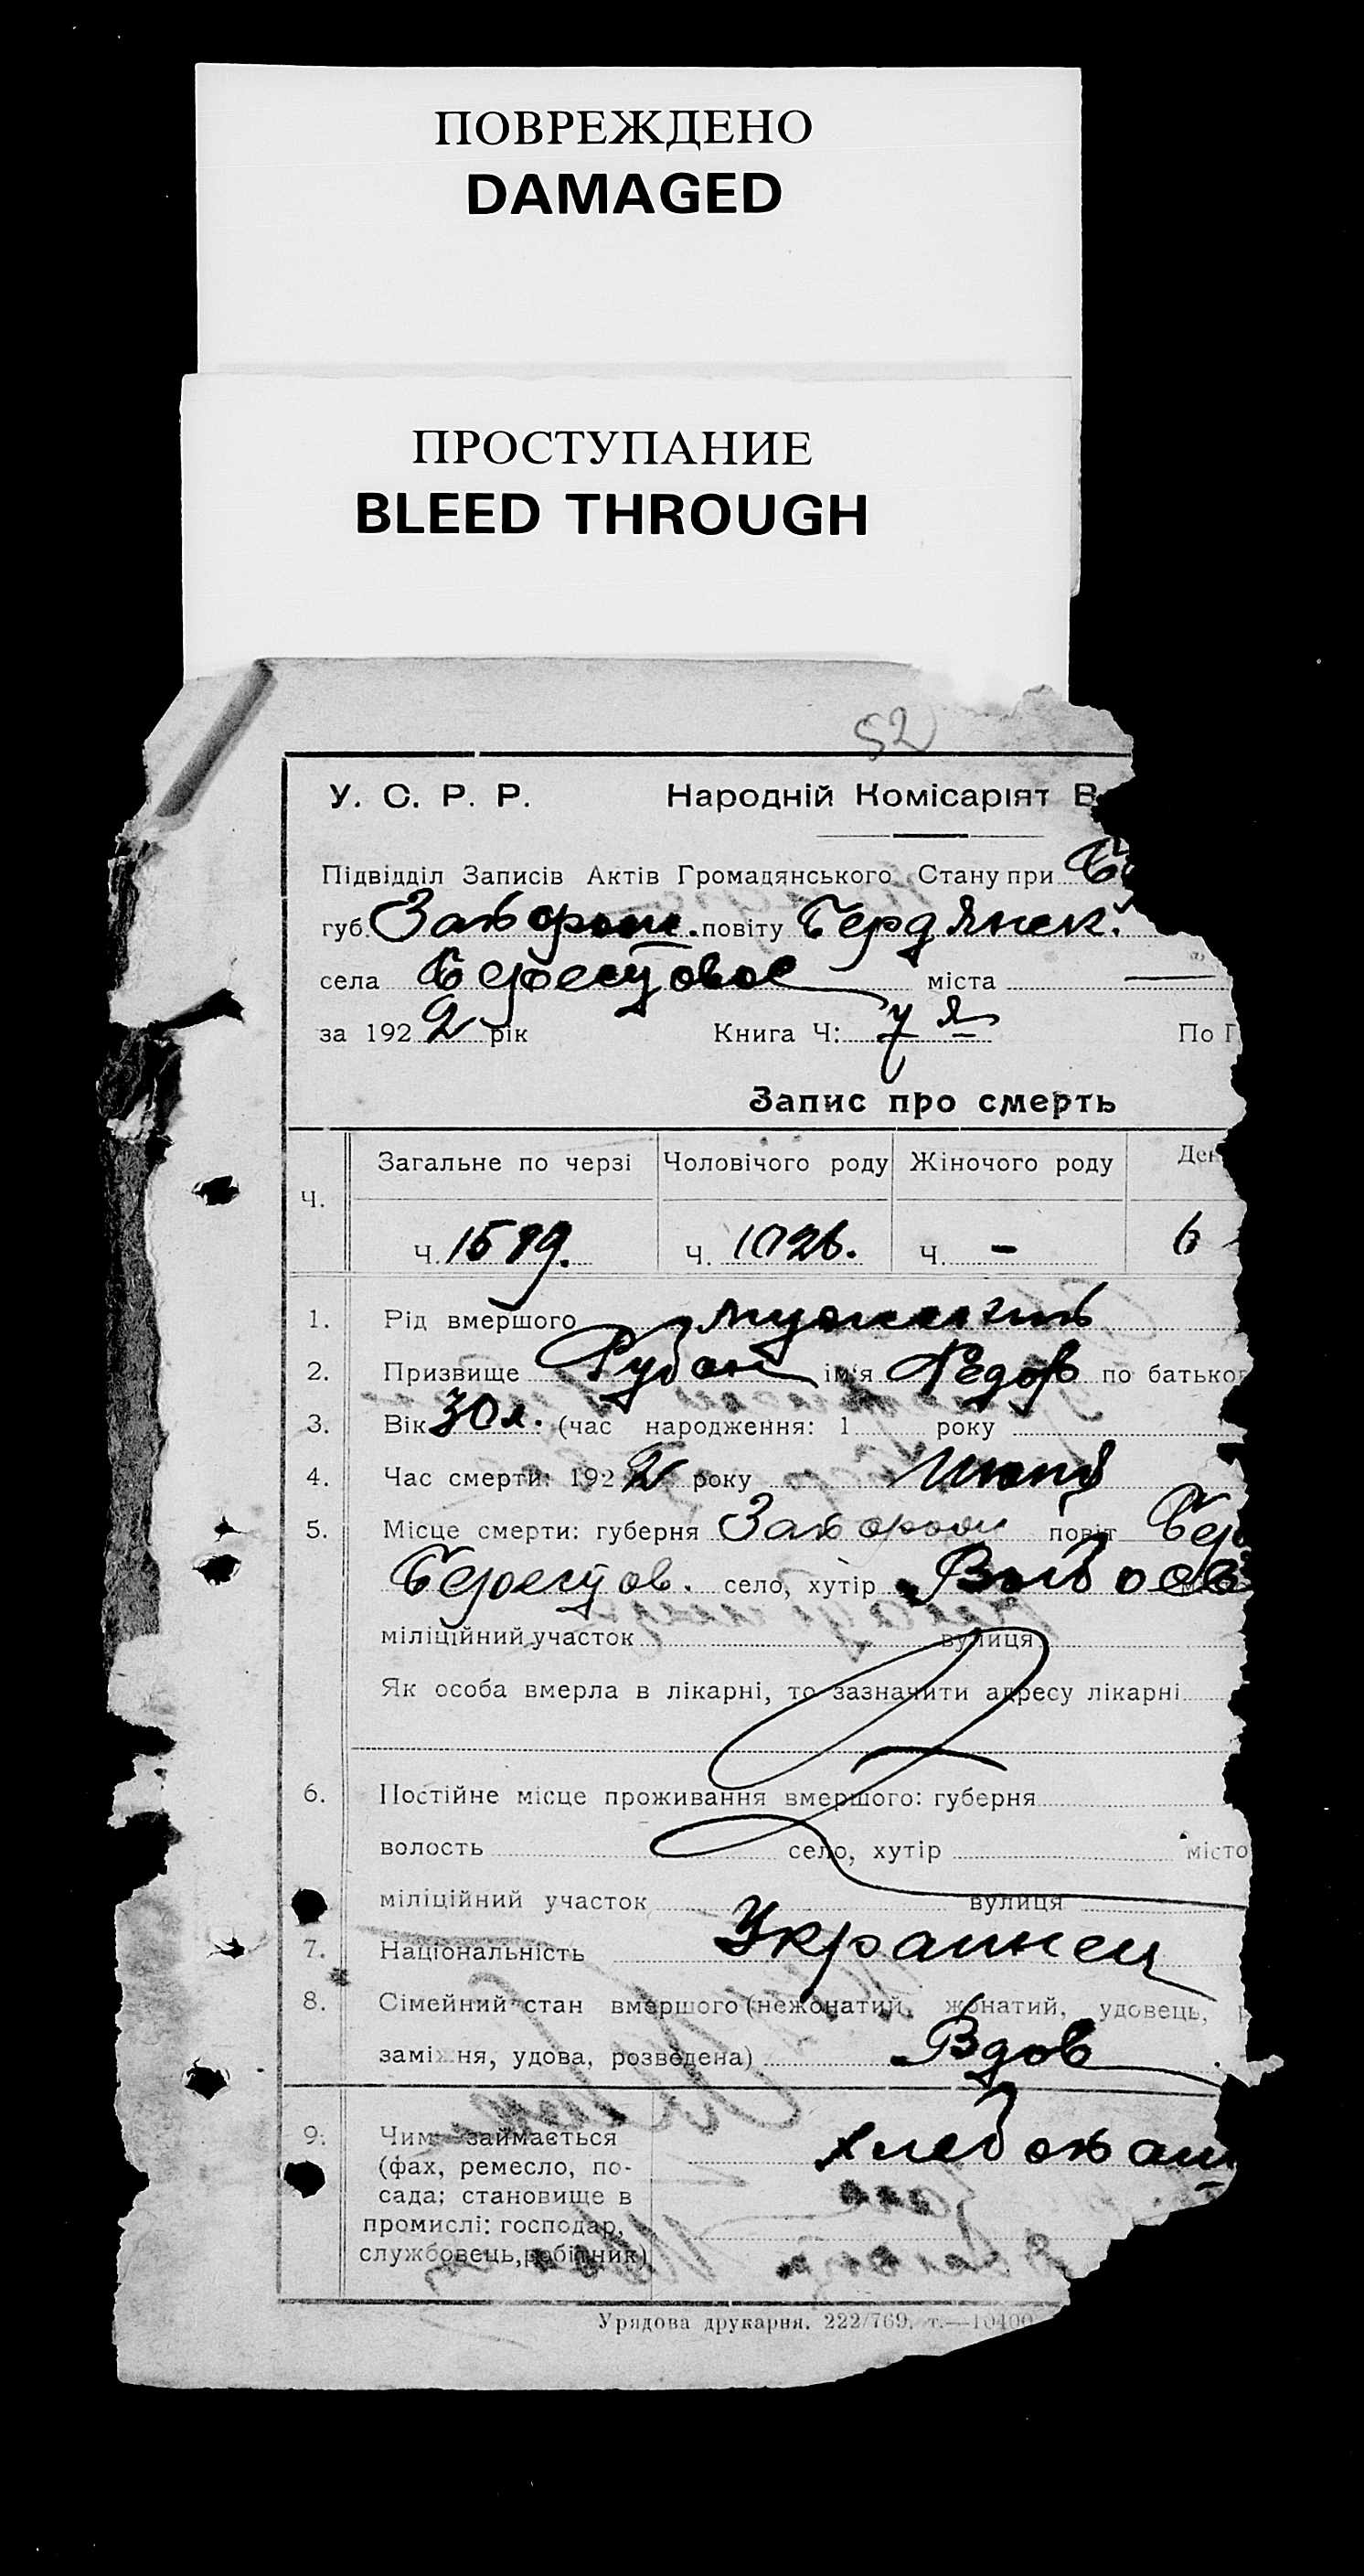 ПОВРЕЖДЕНО
DAMAGED
ПРОСТУПАНИЕ
BLEED THROUGH
52
У. С. Р. Р. Народній Комісаріят В
Підвідділ Записів Актів Громадянського Стану при
губ. повіту Бердянск.
села Берестовое міста —
за 1922 рік Книга Ч: 7 я По Г
Запис про смерть
Загальне по черзі Чоловічого роду Жіночого роду Ден
Ч.
Ч. Ч. 1026. Ч. - 6
1. Рід вмершого
2. Призвище Рубан ім'я Федор по батьков
3. Вік 30 л. (час народження: 1 року
4. Час смерти: 1922 року
5. Місце смерти: губерня повіт Бер
Берестов. село, хутір
міліційний участок вулиця
Як особа вмерла в лікарні, то зазначити адресу лікарні
6. Постійне місце проживання вмершого: губерня
волость село, хутір місто
міліційний участок вулиця
7. Національність Украинец
8. Сімейний стан вмершого (нежонатий, жонатий, удовець, р
заміжня, удова, розведена) Вдов
9. Чим займається
(фах, ремесло, по-
сада; становище в
промислі: господар,
службовець, робітник)
Урядова друкарня. 222/769. т.—10400